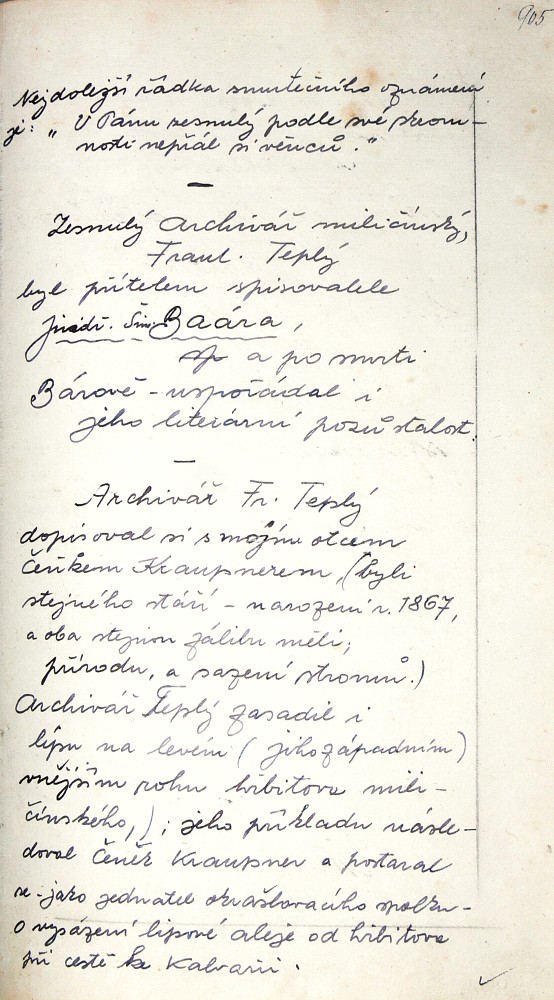 905
Nejdolejší řádka smutečního oznámení
je: „ V Pánu zesnulý podle své skrom-
nosti nepřál si věnců."
—
Zesnulý Archivář miličínský,
Frant. Teplý
byl přítelem spisovatele
Jindř. Šim. Baára,
a po smrti
Bárově - uspořádal i
jeho literární pozůstalost.
—
Archivář Fr. Teplý
dopisoval si s mojím otcem
Čeňkem Kraupnerem, (byli
stejného stáří - narozeni r. 1867,
a oba stejnou zálibu měli;
přírodu, a sazení stromů.)
Archivář Teplý zasadil i
lípu na levém ( jihozápadním )
vnějším rohu hřbitova mili-
čínského,) ; jeho příkladu násle-
doval Čeněk Kraupner a postaral
se - jako jednatel okrašlovacího spolku -
o vysázení lipové aleje od hřbitova
při cestě ke Kalvarii .